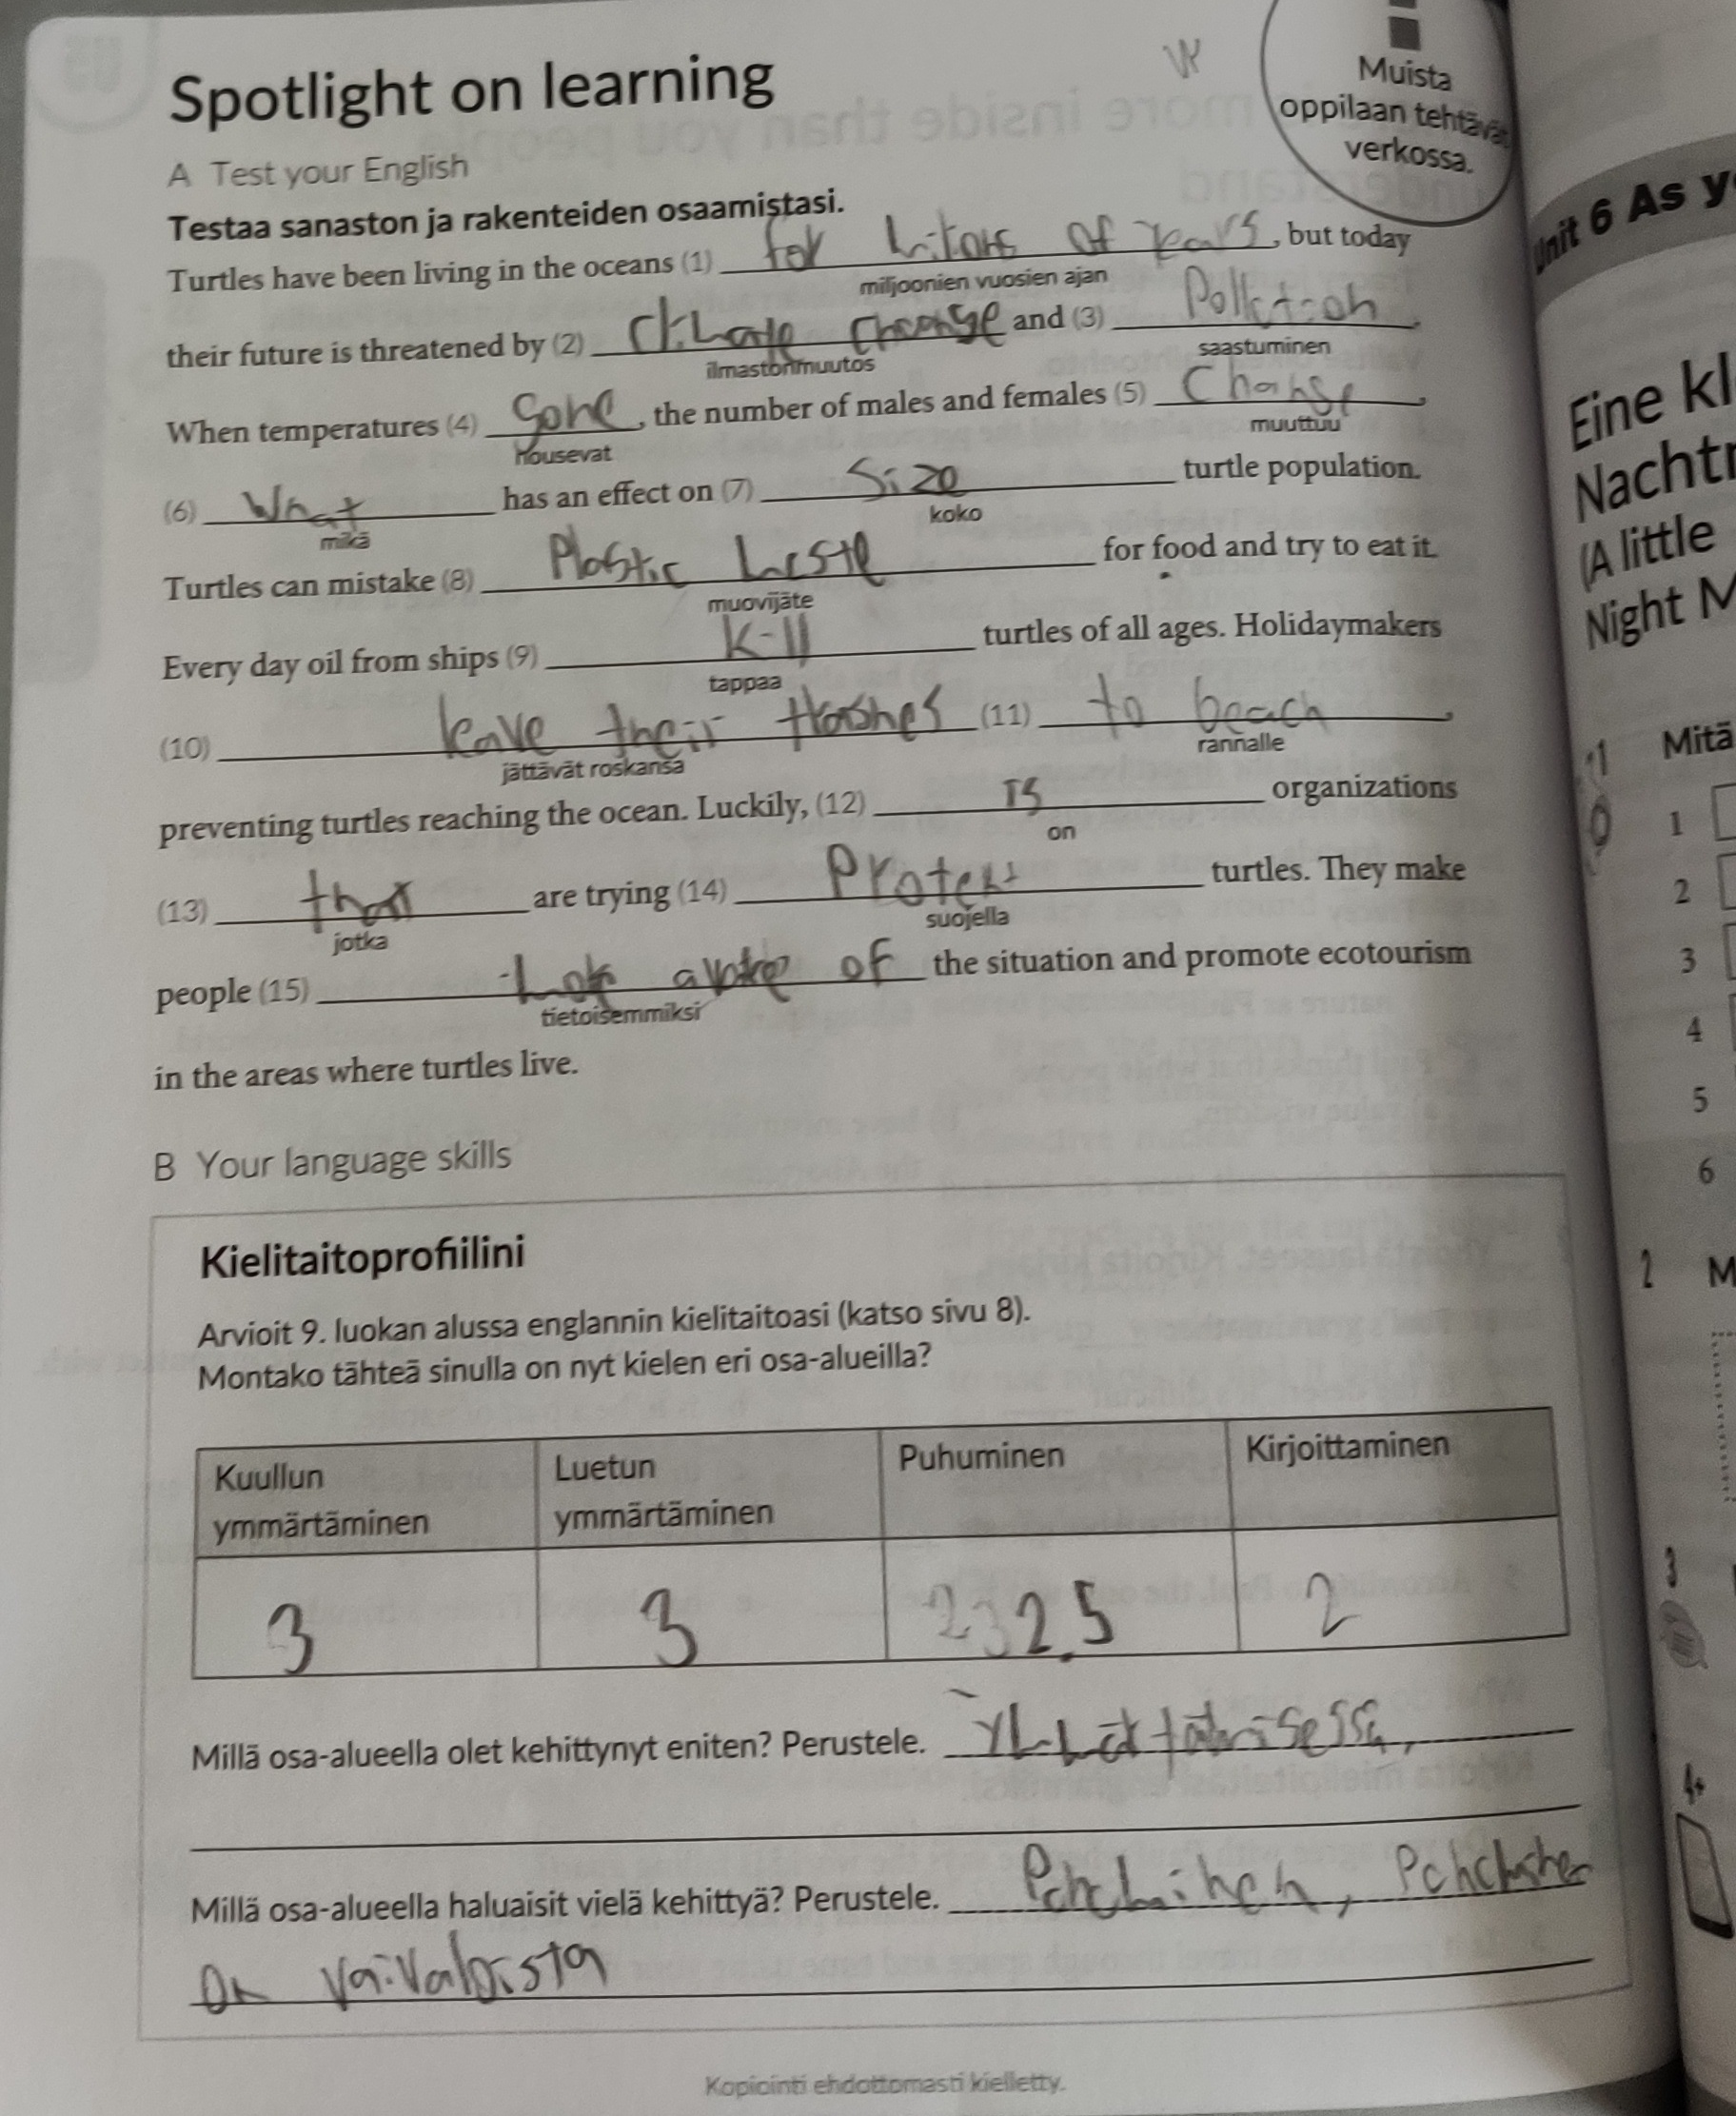 Spotlight on learning
Muista
oppilaan tehtävät
verkossa.
A Test your English
Testaa sanaston ja rakenteiden osaamistasi.
Turtles have been living in the oceans (1) for of years, but today
miljoonien vuosien ajan
their future is threatened by (2) change and (3)
ilmastonmuutos saastuminen
When temperatures (4) , the number of males and females (5) change,
nousevat muuttuu
(6) What has an effect on (7) size turtle population.
mikä koko
Turtles can mistake (8) Plastic for food and try to eat it.
muovijäte
Every day oil from ships (9) kill turtles of all ages. Holidaymakers
tappaa
(10) leave their (11) to beach,
jättävät roskansa rannalle
preventing turtles reaching the ocean. Luckily, (12) is organizations
on
(13) that are trying (14) turtles. They make
jotka suojella
people (15) of the situation and promote ecotourism
tietoisemmiksi
in the areas where turtles live.
B Your language skills
Kielitaitoprofiilini
Arvioit 9. luokan alussa englannin kielitaitoasi (katso sivu 8).
Montako tähteä sinulla on nyt kielen eri osa-alueilla?
Kuullun ymmärtäminen Luetun ymmärtäminen Puhuminen Kirjoittaminen
3 3 2.5 2
Millä osa-alueella olet kehittynyt eniten? Perustele.
Millä osa-alueella haluaisit vielä kehittyä? Perustele. Puhuminen, Puhuminen
on vaivaloista
Kopiointi ehdottomasti kielletty.
Unit 6 As y
Eine kl
Nachtr
(A little
Night M
1 Mitä
1
2
3
4
5
6
2 M
3
4